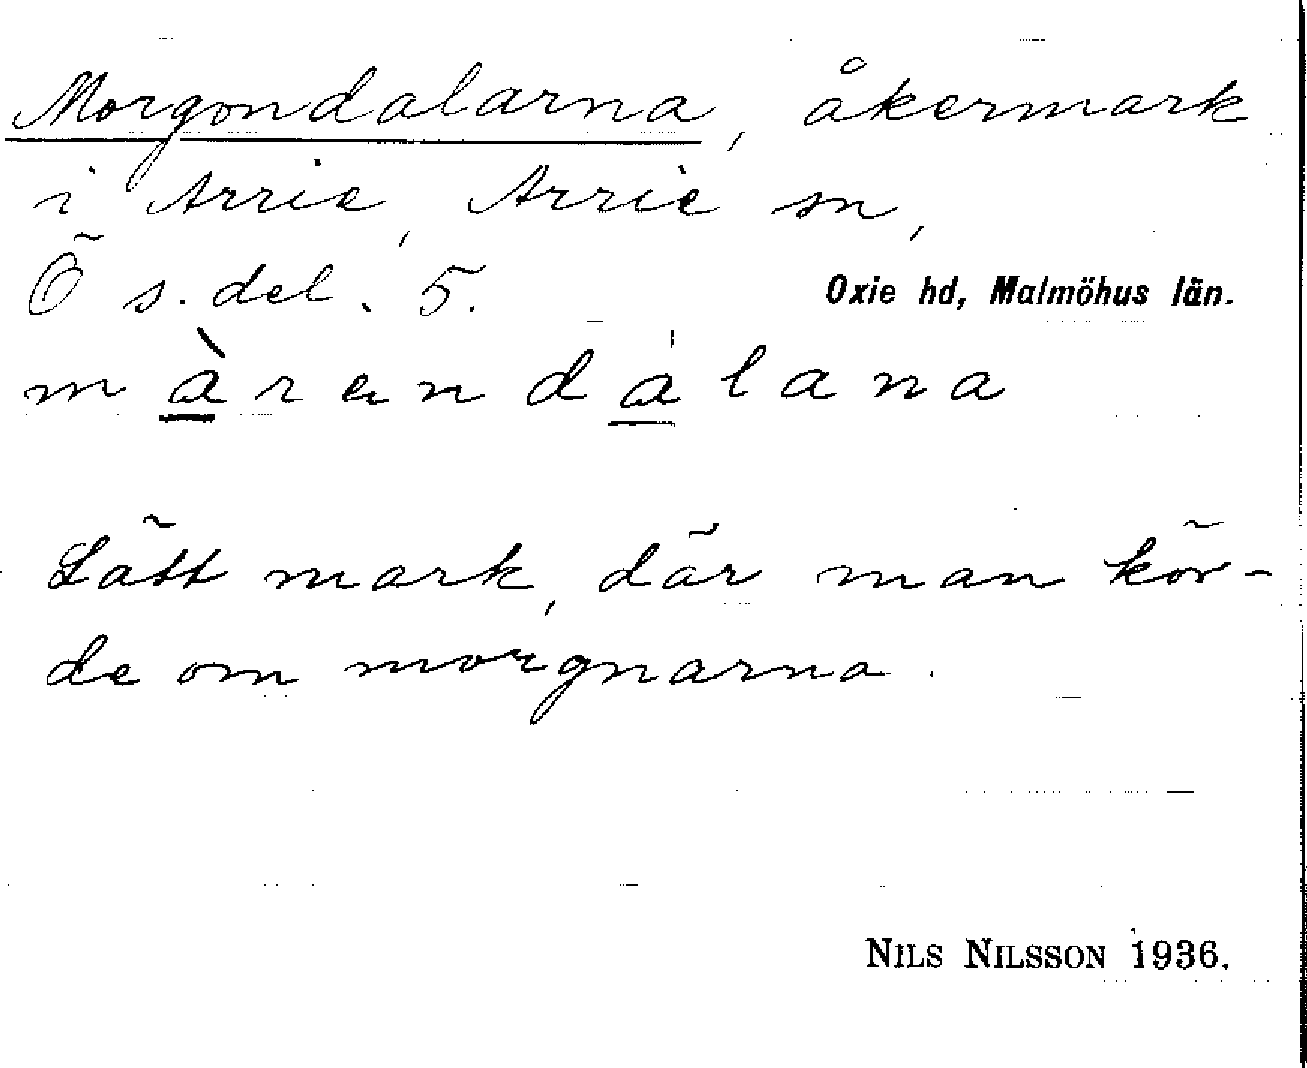 Morgondalarna, åkermark
i Arrie, Arrie sn,
Ö s. del. 5. Oxie hd, Malmöhus län.
màrendálana
Lätt mark, där man kör-
de om morgnarna.
NILS NILSSON 1936.